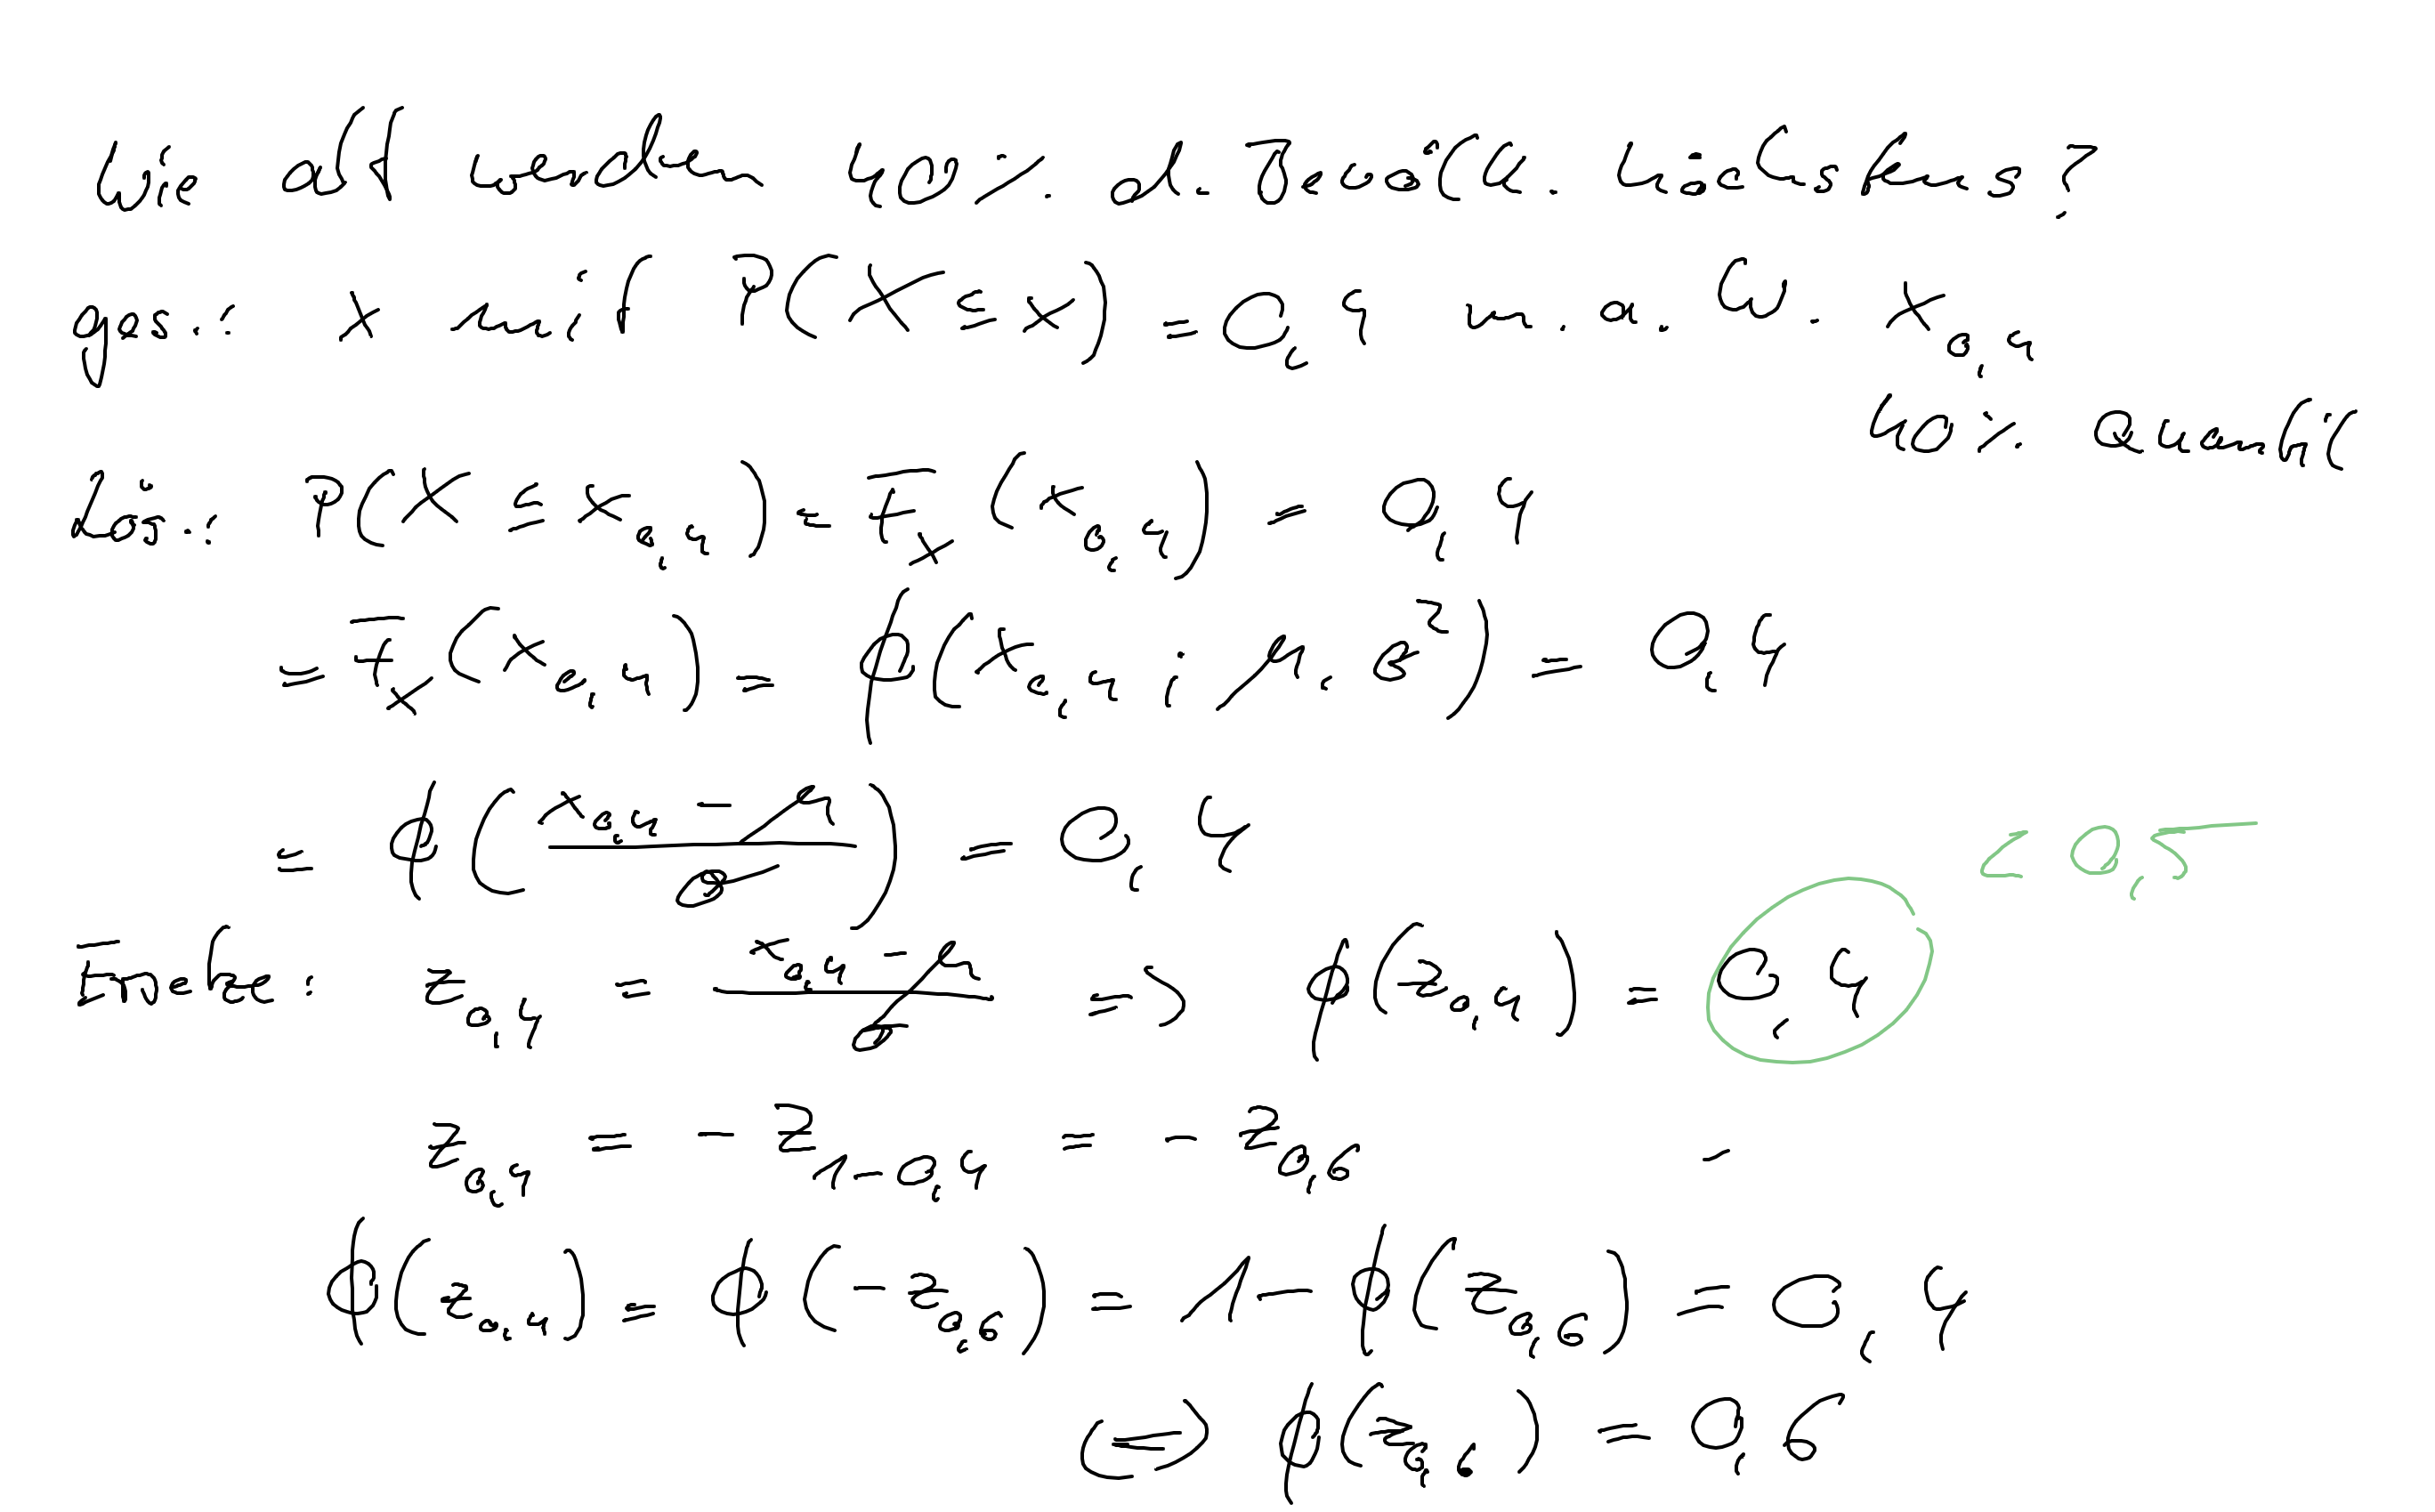 Wie alt werden 40% d. Bevölk. höchstens?
ges.: x mit P(X ≤ x) = 0,4 m.a.W. x_0,4
40% Quantil
Lös.: P(X ≤ x_0,4) = F_X(x_0,4) = 0,4
= F_X(x_0,4) = ϕ(x_0,4 ; μ, σ²) = 0,4
= ϕ((x_0,4 − μ)/σ) = 0,4
< 0,5
z_0,4 = (x_0,4 − μ)/σ => ϕ(z_0,4) = 0,4
z_0,4 = − z_1−0,4 = − z_0,6 −
ϕ(z_0,4) = ϕ(−z_0,6) = 1 − ϕ(z_0,6) = 0,4
<=> ϕ(z_0,6) = 0,6